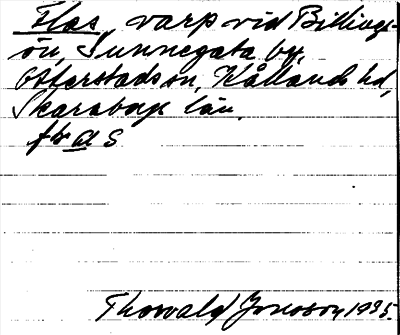 Flas, varp vid Billings-
ön, Sunnegata by,
Otterstad sn, Kållands hd,
Skaraborgs län.
Thorvald Jonsson 1935